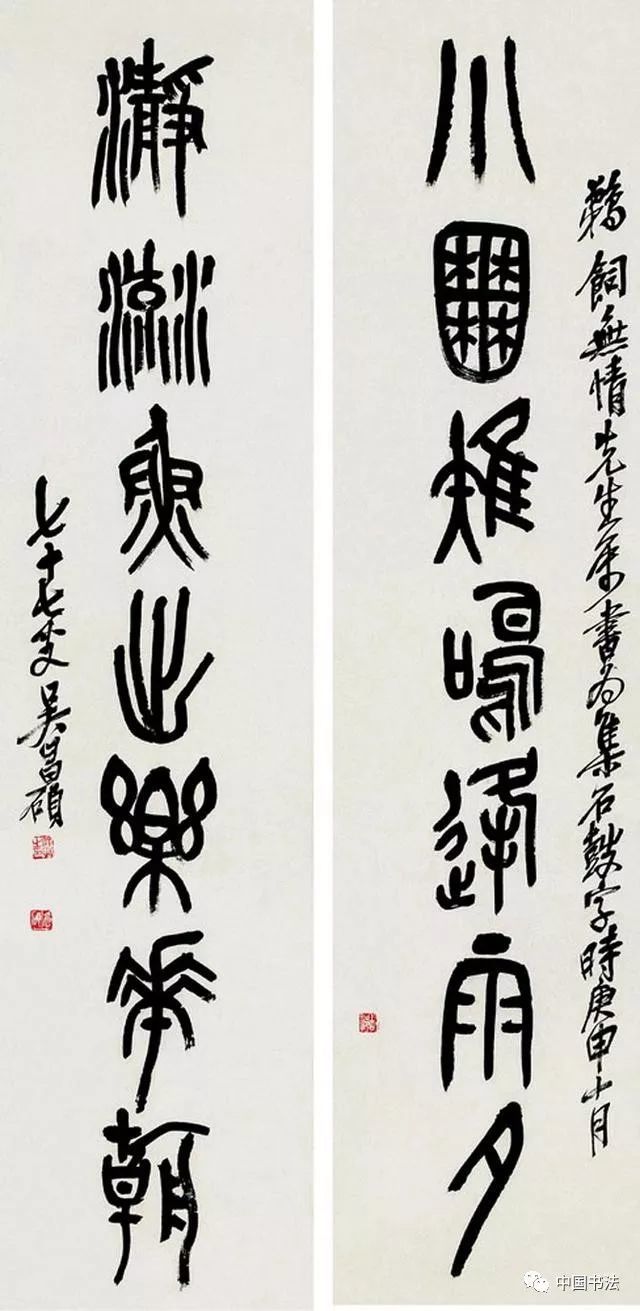 鵜飼無情先生屬書為集石鼓字時庚申十月
小囿雉鳴逢雨夕
瀞流魚出樂華朝
七十七叟吳昌碩
中国书法